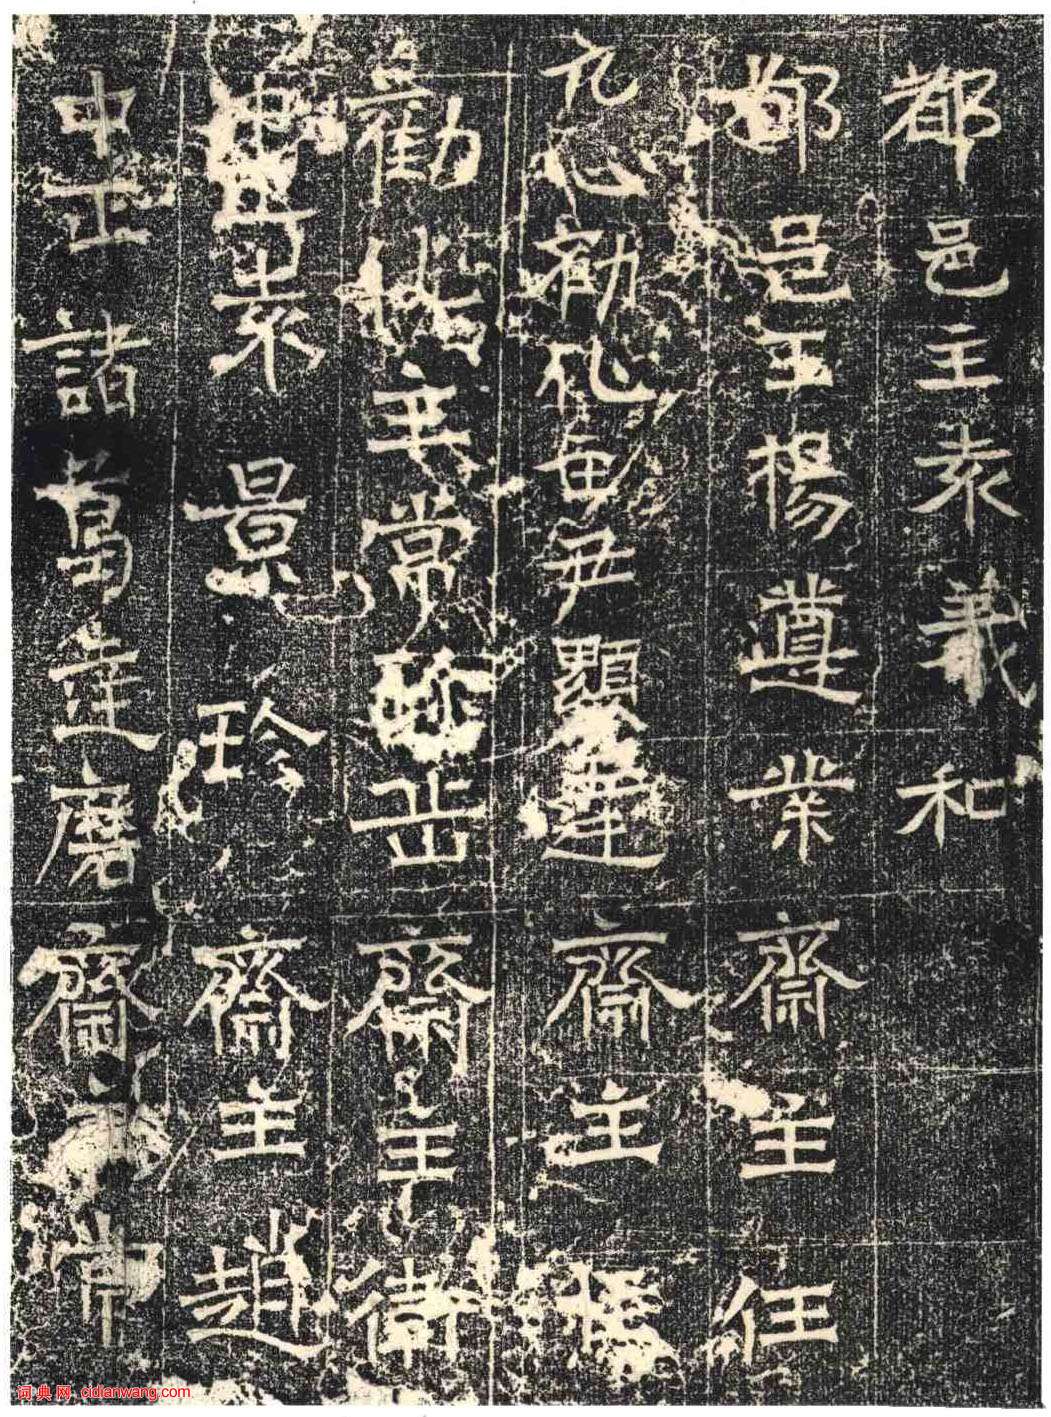 都邑主袁義和
都邑主楊遵業 齋主任
元心勸化每尹顯達 齋主張
勸化主常珍岳 齋主衛
中正袁景玲 齋主趙
中正諸葛達磨 齋主常
词典网 cidianwang.com